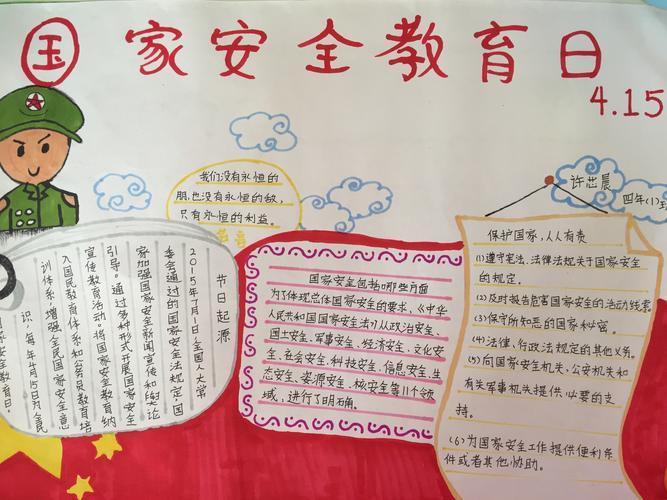 国家安全教育日
4.15
许芯晨
四年(1)
我们没有永恒的
朋,也没有永恒的敌,
只有永恒的利益。
节日起源
2015年7月1日,全国人大常
委会通过的《国家安全法》规定,国
家加强国家安全新闻宣传和舆论
引导。通过多种形式开展国家安全
宣传教育活动。将国家安全教育纳
入国民教育体系和公务员教育培
训体系,增强全民国家安全意
识。每年4月15日为全民
国家安全教育日。
国家安全包括哪些方面
为了体现总体国家安全的要求,《中华
人民共和国国家安全法》从政治安全、
国土安全、军事安全、经济安全、文化安
全、社会安全、科技安全、信息安全、生
态安全、资源安全、核安全等11个领
域,进行了明确。
保护国家,人人有责
(1)遵守宪法、法律法规关于国家安全
的规定。
(2)及时报告危害国家安全的活动线索。
(3)保守所知悉的国家秘密。
(4)法律、行政法规定的其他义务。
(5)向国家安全机关、公安机关和
有关军事机关提供必要的支
持。
(6)为国家安全工作提供便利条
件或者其他协助。